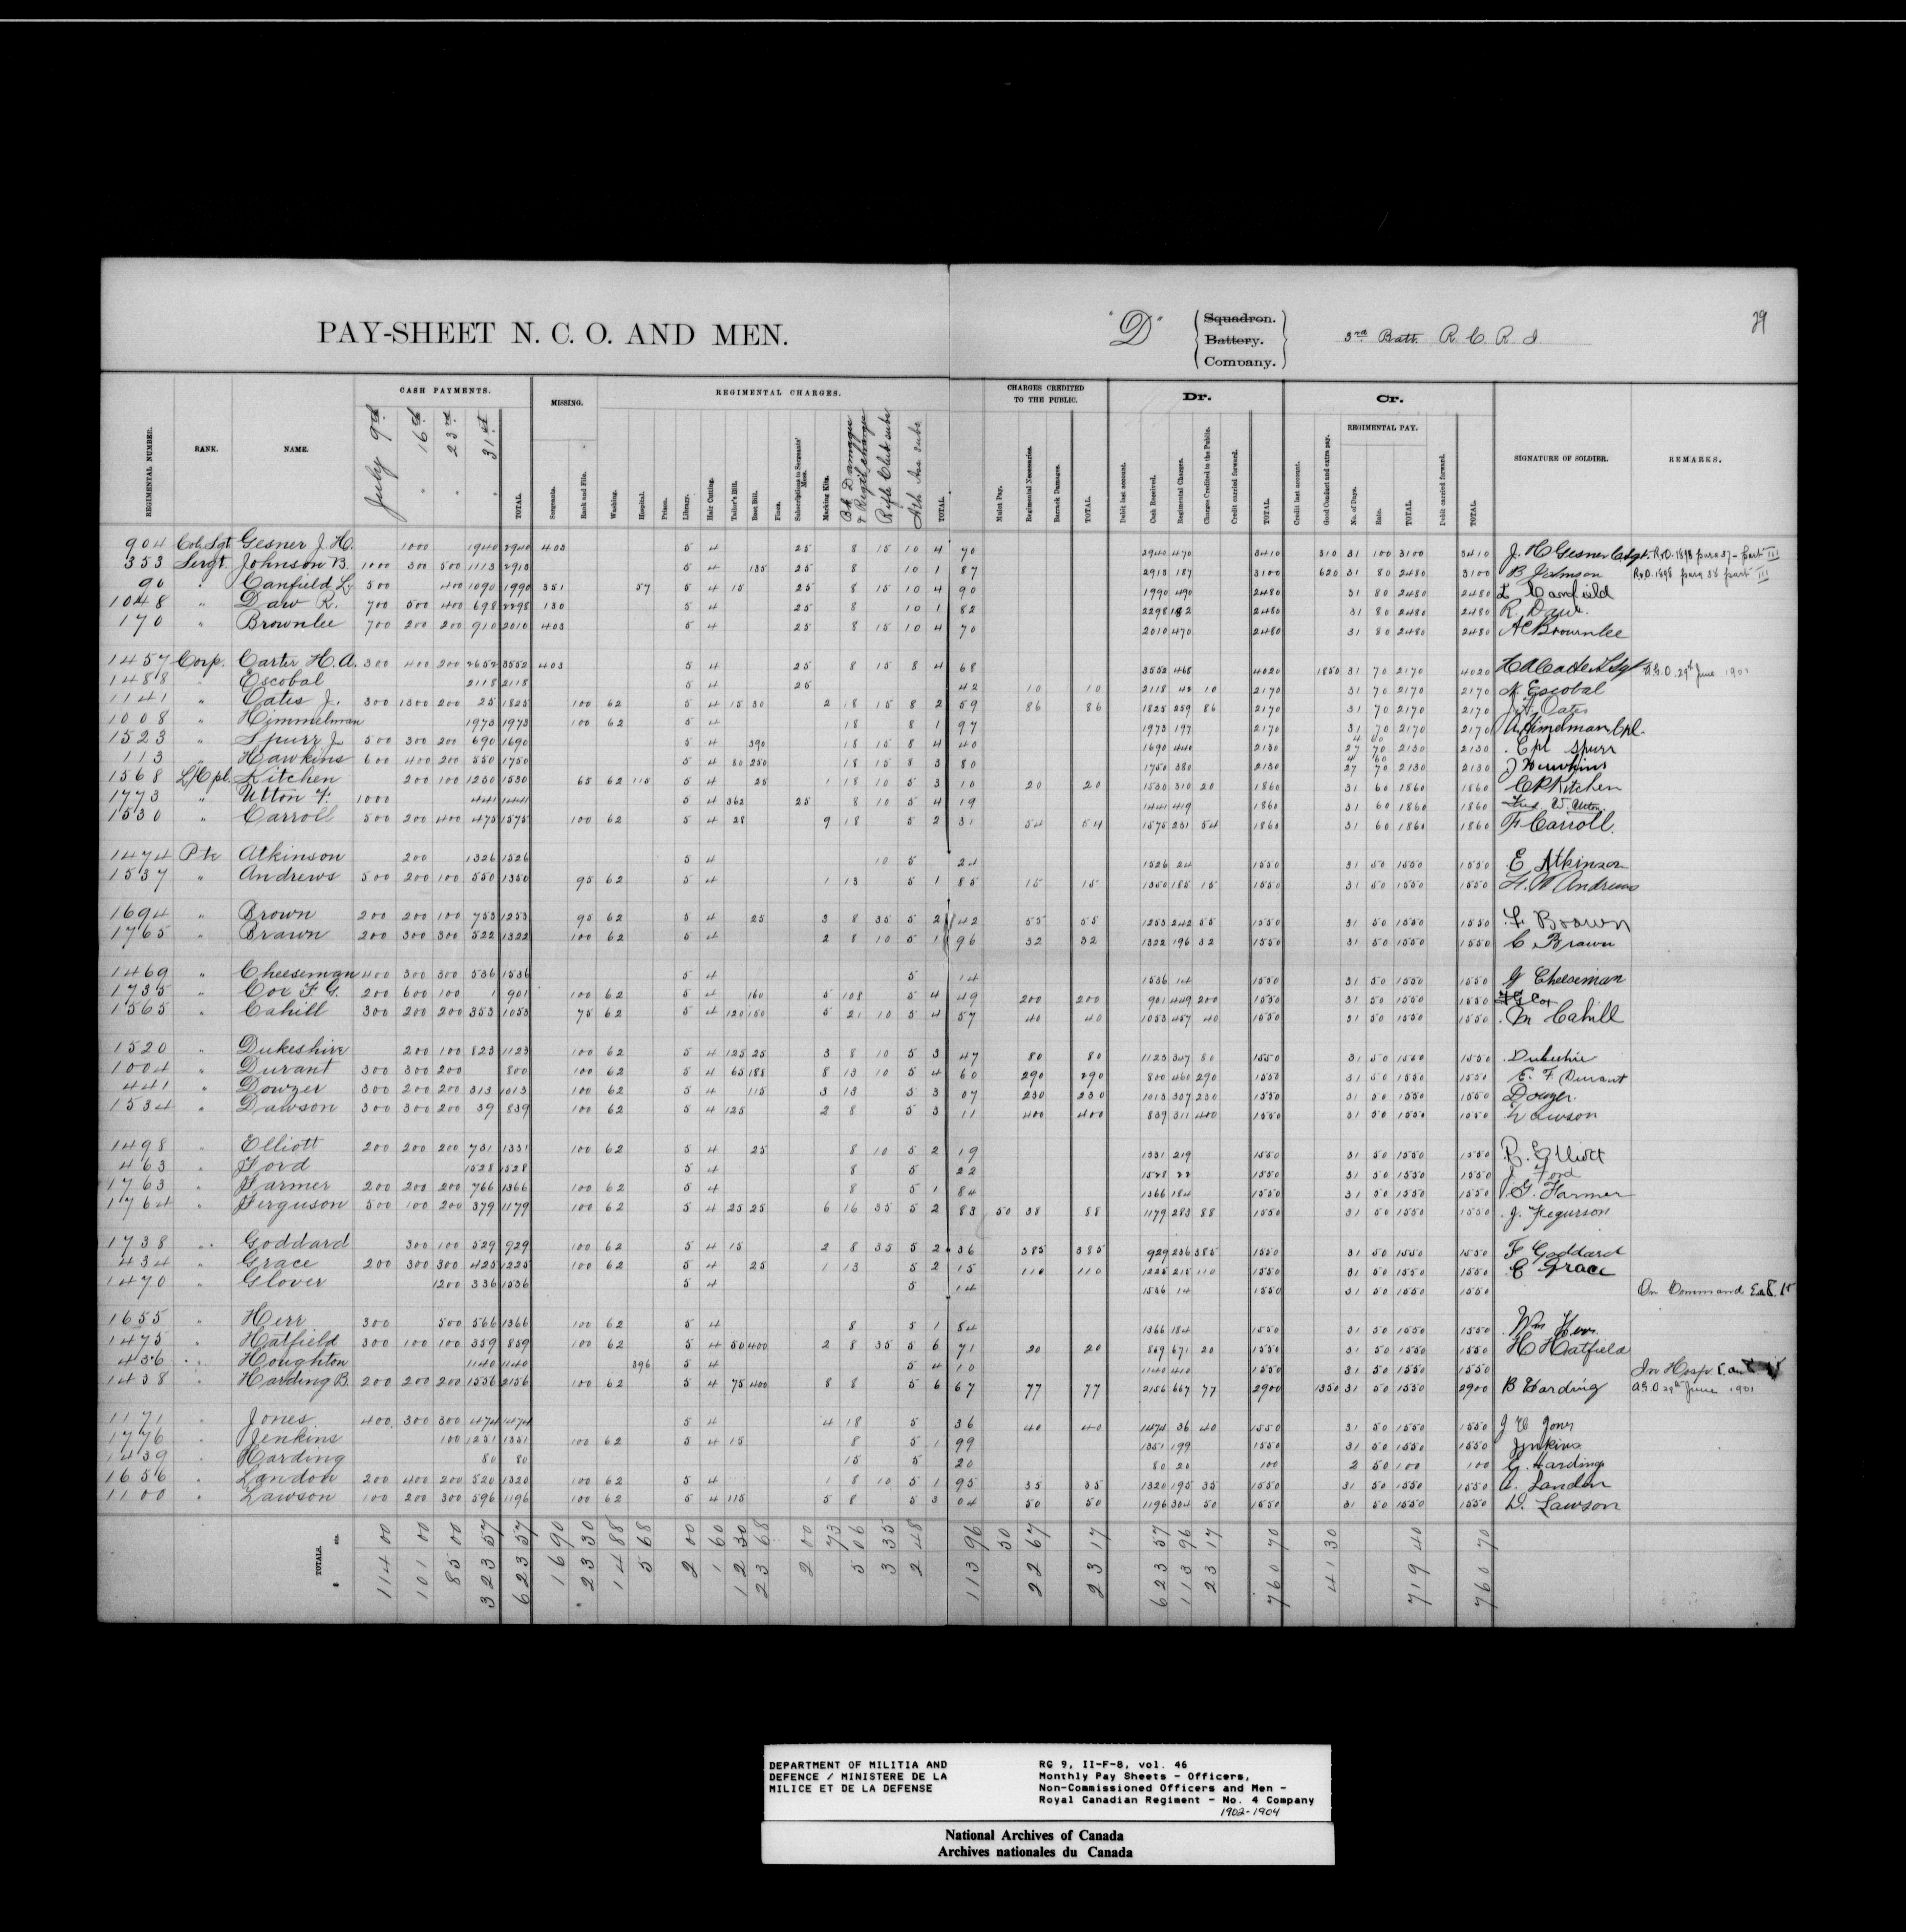 PAY-SHEET N. C. O. AND MEN.
"D" Squadron. Battery. Company.
3rd Batt. R. C. R. I.
29
REGIMENTAL NUMBER. RANK. NAME. CASH PAYMENTS. MISSING. REGIMENTAL CHARGES. CHARGES CREDITED TO THE PUBLIC. Dr. Cr. SIGNATURE OF SOLDIER. REMARKS.
July 9th " 16th " 23rd " 31st TOTAL. Sergeants. Rank and File. Washing. Hospital. Prison. Library. Hair Cutting. Tailor's Bill. Boot Bill. Fines. Subscriptions to Sergeants' Mess. Marking Kits. Bk Damages & Regtl charges Rifle Club subs Ath Ass subs TOTAL. Mulct Pay. Regimental Necessaries. Barrack Damages. TOTAL. Debit last account. Cash Received. Regimental Charges. Charges Credited to the Public. Credit carried forward. TOTAL. Credit last account. Good Conduct and extra pay. REGIMENTAL PAY. No. of Days. Rate. TOTAL. Debit carried forward. TOTAL.
904 Col. Sgt. Gesner J. H. 1000 1940 2940 403 5 4 25 8 15 10 4 70 2940 470 3410 310 31 100 3100 3410 J. H Gesner C.Sgt. R&O. 1898 para 37 - part III
353 Sergt. Johnson B. 1000 300 500 1113 2913 5 4 135 25 8 10 1 87 2913 187 3100 620 31 80 2480 3100 B Johnson R&O. 1898 para 38 part III
90 " Canfield L. 500 400 1090 1990 351 57 5 4 15 25 8 15 10 4 90 1990 490 2480 31 80 2480 2480 L Canfield
1048 " Daw R. 700 500 400 698 2298 130 5 4 25 8 10 1 82 2298 182 2480 31 80 2480 2480 R. Daw.
170 " Brownlee 700 200 200 910 2010 403 5 4 25 8 15 10 4 70 2010 470 2480 31 80 2480 2480 AC Brownlee
1457 Corp. Carter H. A. 300 400 200 2652 3552 403 5 4 25 8 15 8 4 68 3552 468 4020 1850 31 70 2170 4020 29th June 1901
1488 " Escobal 2118 2118 5 4 25 42 10 10 2118 42 10 2170 31 70 2170 2170 N. Escobal
1141 " Oates J. 300 1300 200 25 1825 100 62 5 4 15 30 2 18 15 8 2 59 86 86 1825 259 86 2170 31 70 2170 2170 J.A. Oates
1008 " Himmelman 1973 1973 100 62 5 4 18 8 1 97 1973 197 2170 31 70 2170 2170 A Himelman Cpl.
1523 " Spurr J. 500 300 200 690 1690 5 4 390 18 15 8 4 40 1690 440 2130 4 60 27 70 2130 2130 Cpl Spurr
113 " Hawkins 600 400 200 550 1750 5 4 80 250 18 15 8 3 80 1750 380 2130 4 60 27 70 2130 2130 J Hawkins
1568 L/Cpl. Kitchen 200 100 1230 1530 65 62 115 5 4 25 1 18 10 5 3 10 20 20 1530 310 20 1860 31 60 1860 1860 C R Kitchen
1773 " Utton F. 1000 441 1441 5 4 362 25 8 10 5 4 19 1441 419 1860 31 60 1860 1860 Fred. W. Utton
1530 " Carroll 500 200 400 475 1575 100 62 5 4 28 9 18 5 2 31 54 54 1575 231 54 1860 31 60 1860 1860 F Carroll.
1474 Pte Atkinson 200 1326 1526 5 4 10 5 24 1526 24 1550 31 50 1550 1550 E Atkinson
1537 " Andrews 500 200 100 550 1350 95 62 5 4 1 13 5 1 85 15 15 1350 185 15 1550 31 50 1550 1550 Andrews
1694 " Brown 200 200 100 753 1253 95 62 5 4 25 3 8 35 5 2 42 55 55 1253 242 55 1550 31 50 1550 1550 F Brown
1765 " Brawn 200 300 300 522 1322 100 62 5 4 2 8 10 5 1 96 32 32 1322 196 32 1550 31 50 1550 1550 C Brawn
1469 " Cheeseman 400 300 300 536 1536 5 4 5 14 1536 14 1550 31 50 1550 1550 Cheeseman
1735 " Cox F. G. 200 600 100 1 901 100 62 5 4 160 5 108 5 4 49 200 200 901 449 200 1550 31 50 1550 1550 F G Cox
1565 " Cahill 300 200 200 353 1053 75 62 5 4 120 150 5 21 10 5 4 57 40 40 1053 457 40 1550 31 50 1550 1550 M Cahill
1520 " Dukeshire 200 100 823 1123 100 62 5 4 125 25 3 8 10 5 3 47 80 80 1123 347 80 1550 31 50 1550 1550
1004 " Durant 300 300 200 800 100 62 5 4 65 188 8 13 10 5 4 60 290 290 800 460 290 1550 31 50 1550 1550 E. F. Durant
441 " Dowzer 300 200 200 313 1013 100 62 5 4 115 3 13 5 3 07 230 230 1013 307 230 1550 31 50 1550 1550 Dowzer.
1534 " Dawson 300 300 200 39 839 100 62 5 4 125 2 8 5 3 11 400 400 839 311 400 1550 31 50 1550 1550 Dawson
1498 " Elliott 200 200 200 731 1331 100 62 5 4 25 8 10 5 2 19 1331 219 1550 31 50 1550 1550 R. Elliott
463 " Ford 1528 1528 5 4 8 5 22 1528 22 1550 31 50 1550 1550 J Ford
1763 " Farmer 200 200 200 766 1366 100 62 5 4 8 5 1 84 1366 184 1550 31 50 1550 1550 G. Farmer
1764 " Ferguson 500 100 200 379 1179 100 62 5 4 25 25 6 16 35 5 2 83 50 38 88 1179 283 88 1550 31 50 1550 1550 J. Fegurson
1738 " Goddard 300 100 529 929 100 62 5 4 15 2 8 35 5 2 36 385 385 929 236 385 1550 31 50 1550 1550 F Goddard
434 " Grace 200 300 300 425 1225 100 62 5 4 25 1 13 5 2 15 110 110 1225 215 110 1550 31 50 1550 1550 C Grace
1470 " Glover 1200 336 1536 5 4 5 14 1536 14 1550 31 50 1550 1550 On Command
1655 " Herr 300 500 566 1366 100 62 5 4 8 5 1 84 1366 184 1550 31 50 1550 1550 Wm Herr
1475 " Hatfield 300 100 100 359 859 100 62 5 4 50 400 2 8 35 5 6 71 20 20 859 671 20 1550 31 50 1550 1550 H Hatfield
436 " Houghton 1140 1140 396 5 4 5 4 10 1140 410 1550 31 50 1550 1550 In Hosp
1438 " Harding B. 200 200 200 1556 2156 100 62 5 4 75 400 8 8 5 6 67 77 77 2156 667 77 2900 1350 31 50 1550 2900 B Harding 29th June 1901
1171 " Jones 400 300 300 474 1474 5 4 4 18 5 36 40 40 1474 36 40 1550 31 50 1550 1550 Jones
1776 " Jenkins 100 1251 1351 100 62 5 4 15 8 5 1 99 1351 199 1550 31 50 1550 1550 Jenkins
1439 " Harding 80 80 15 5 20 80 20 100 2 50 100 100 G. Harding
1656 " Landon 200 400 200 520 1320 100 62 5 4 1 8 10 5 1 95 35 35 1320 195 35 1550 31 50 1550 1550 A. Landon
1100 " Lawson 100 200 300 596 1196 100 62 5 4 115 5 8 5 3 04 50 50 1196 304 50 1550 31 50 1550 1550 D. Lawson
TOTALS. $ cts. 114 00 101 00 85 00 323 57 623 57 16 90 23 30 14 88 5 68 2 00 1 60 12 30 23 68 2 00 73 5 06 3 35 2 48 113 96 50 22 67 23 17 623 57 113 96 23 17 760 70 41 30 719 40 760 70
DEPARTMENT OF MILITIA AND DEFENCE / MINISTERE DE LA MILICE ET DE LA DEFENSE
RG 9, II-F-8, vol. 46
Monthly Pay Sheets - Officers,
Non-Commissioned Officers and Men -
Royal Canadian Regiment - No. 4 Company
1902-1904
National Archives of Canada
Archives nationales du Canada